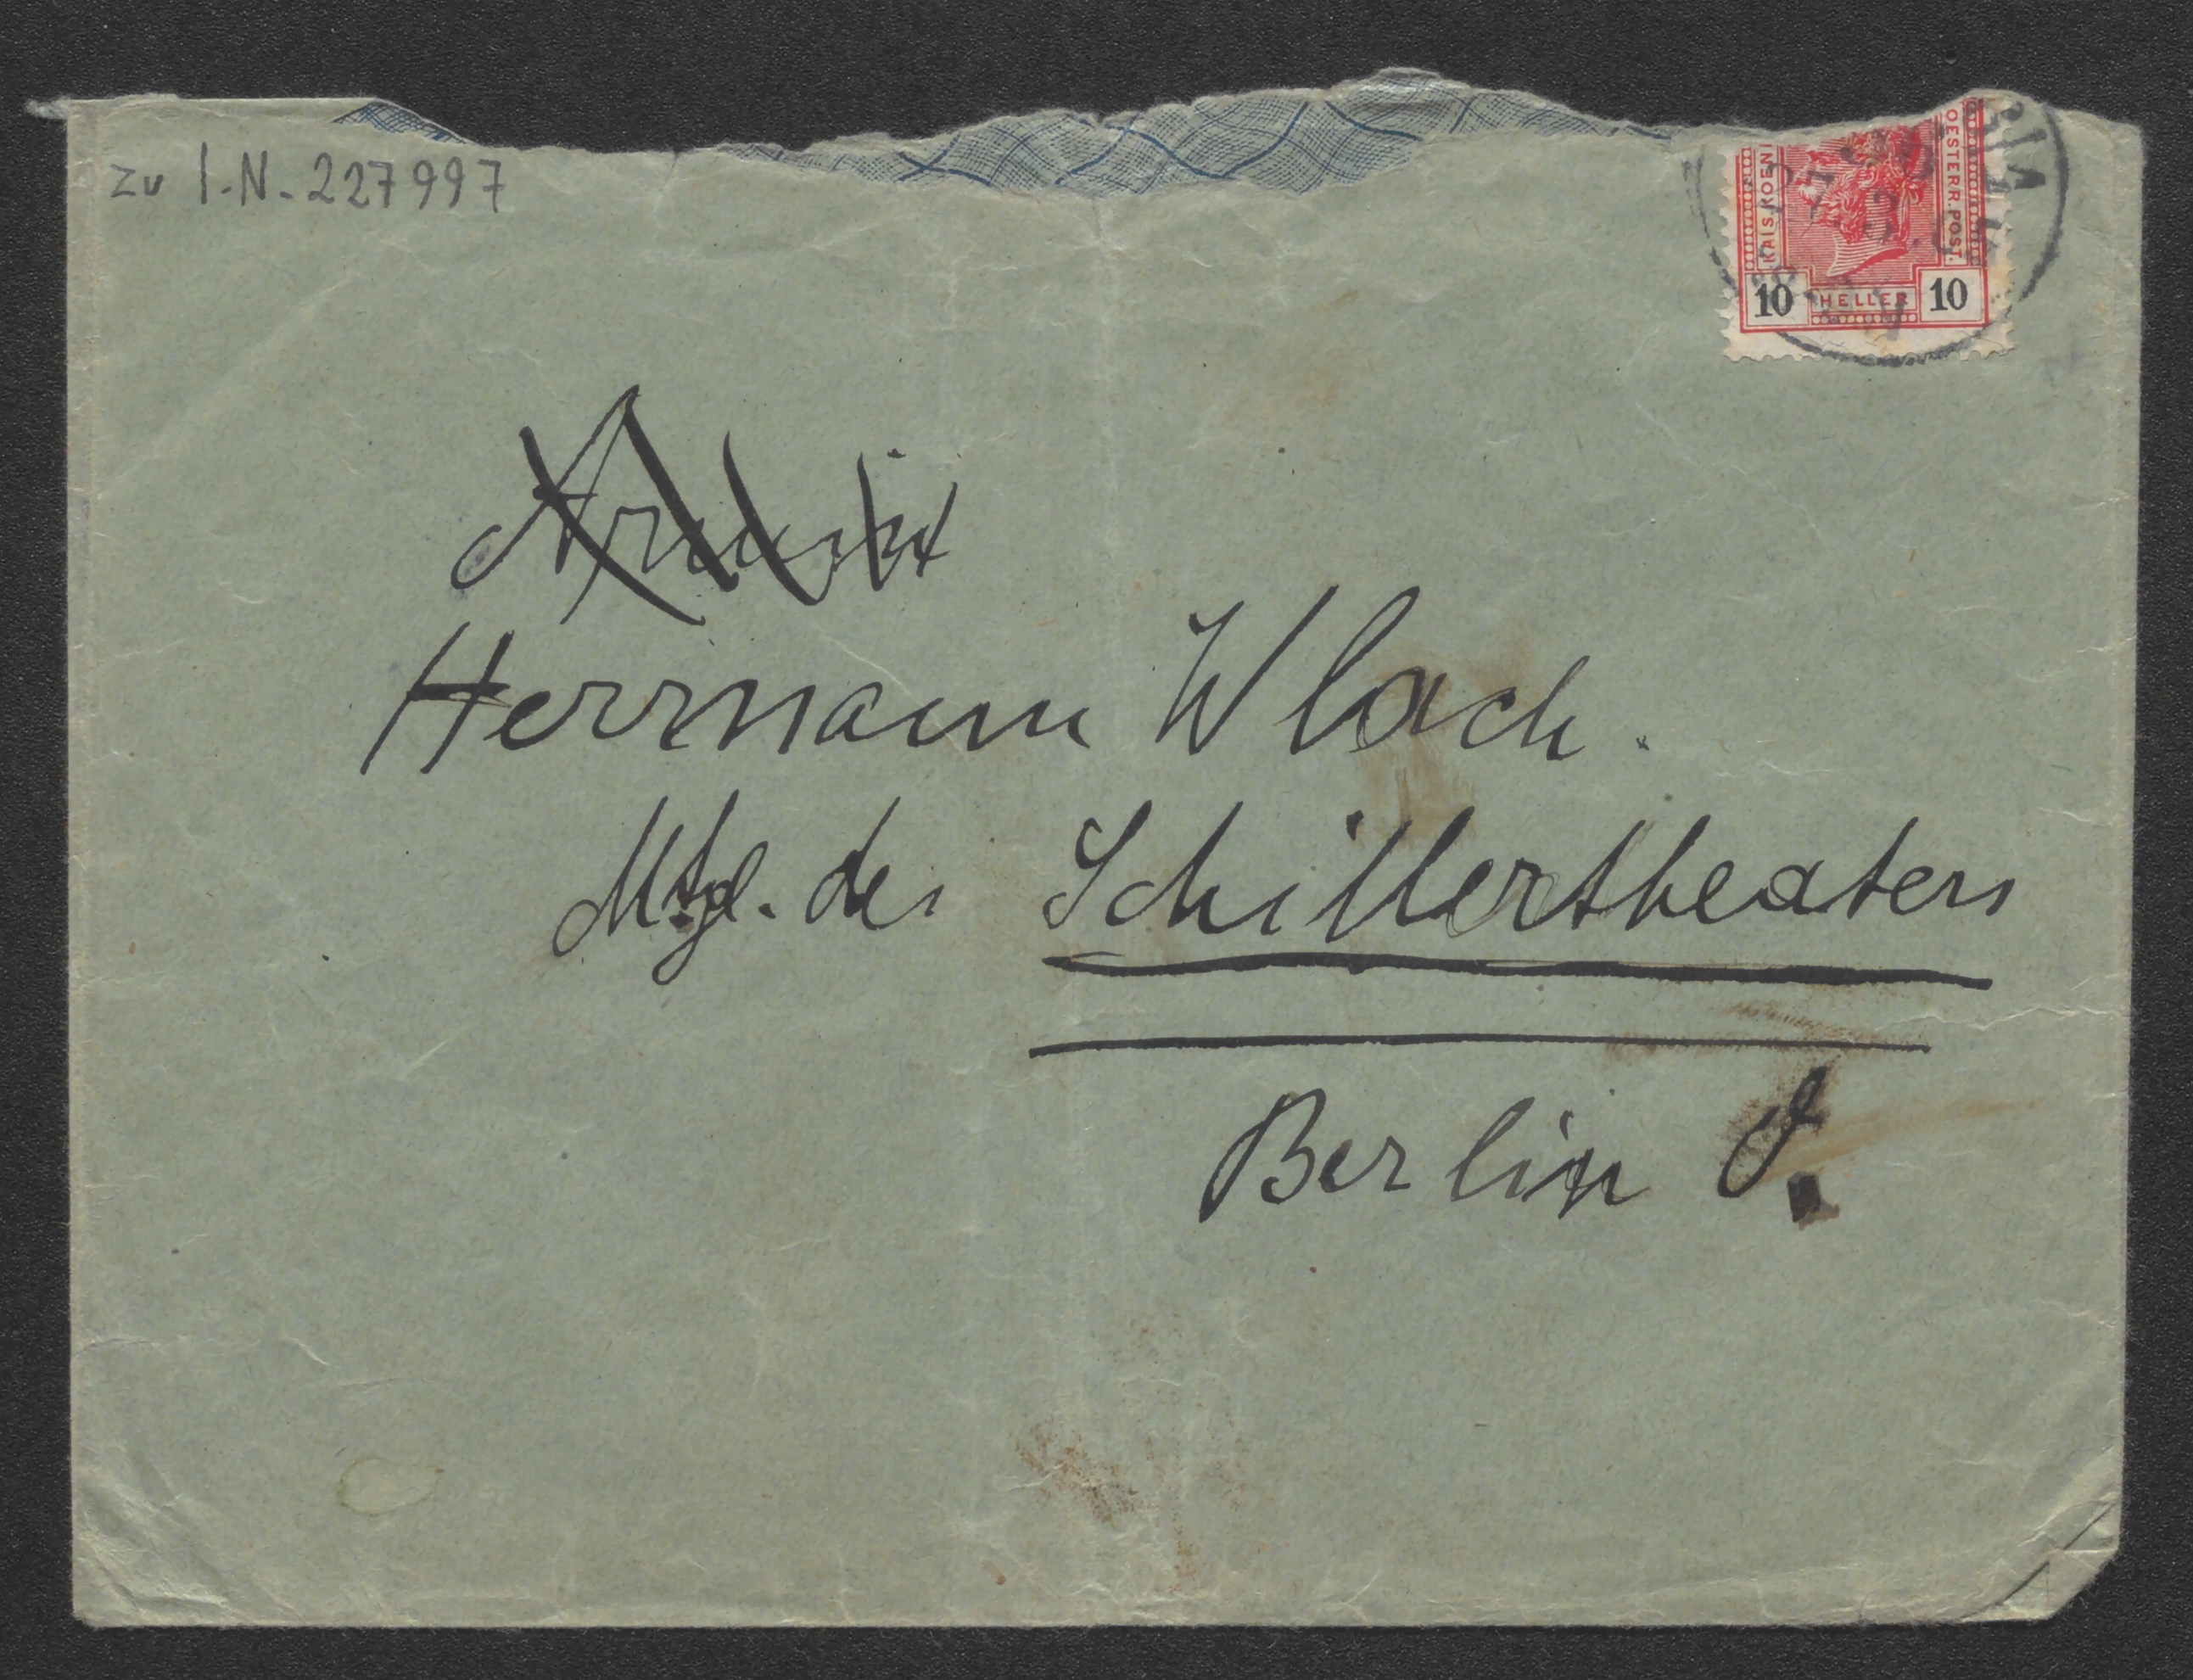 zu I.-N.-227997
KAIS. KOENI
OESTERR. POST.
10 HELLER 10
Herrmann Wlach.
Mtgl. des Schillertheaters
Berlin O.